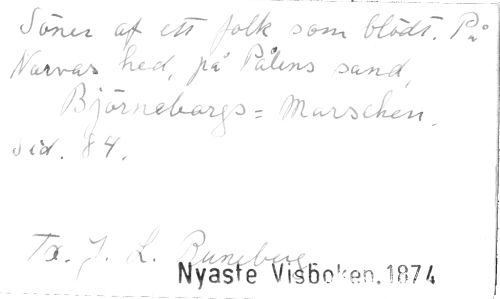 Söner af ett folk som blödt. På
Narvas hed, på Pålens sand,
Björneborgs= Marschen.
sid. 84.
Tx. J. L. Runeberg
Nyaste Visboken. 1874